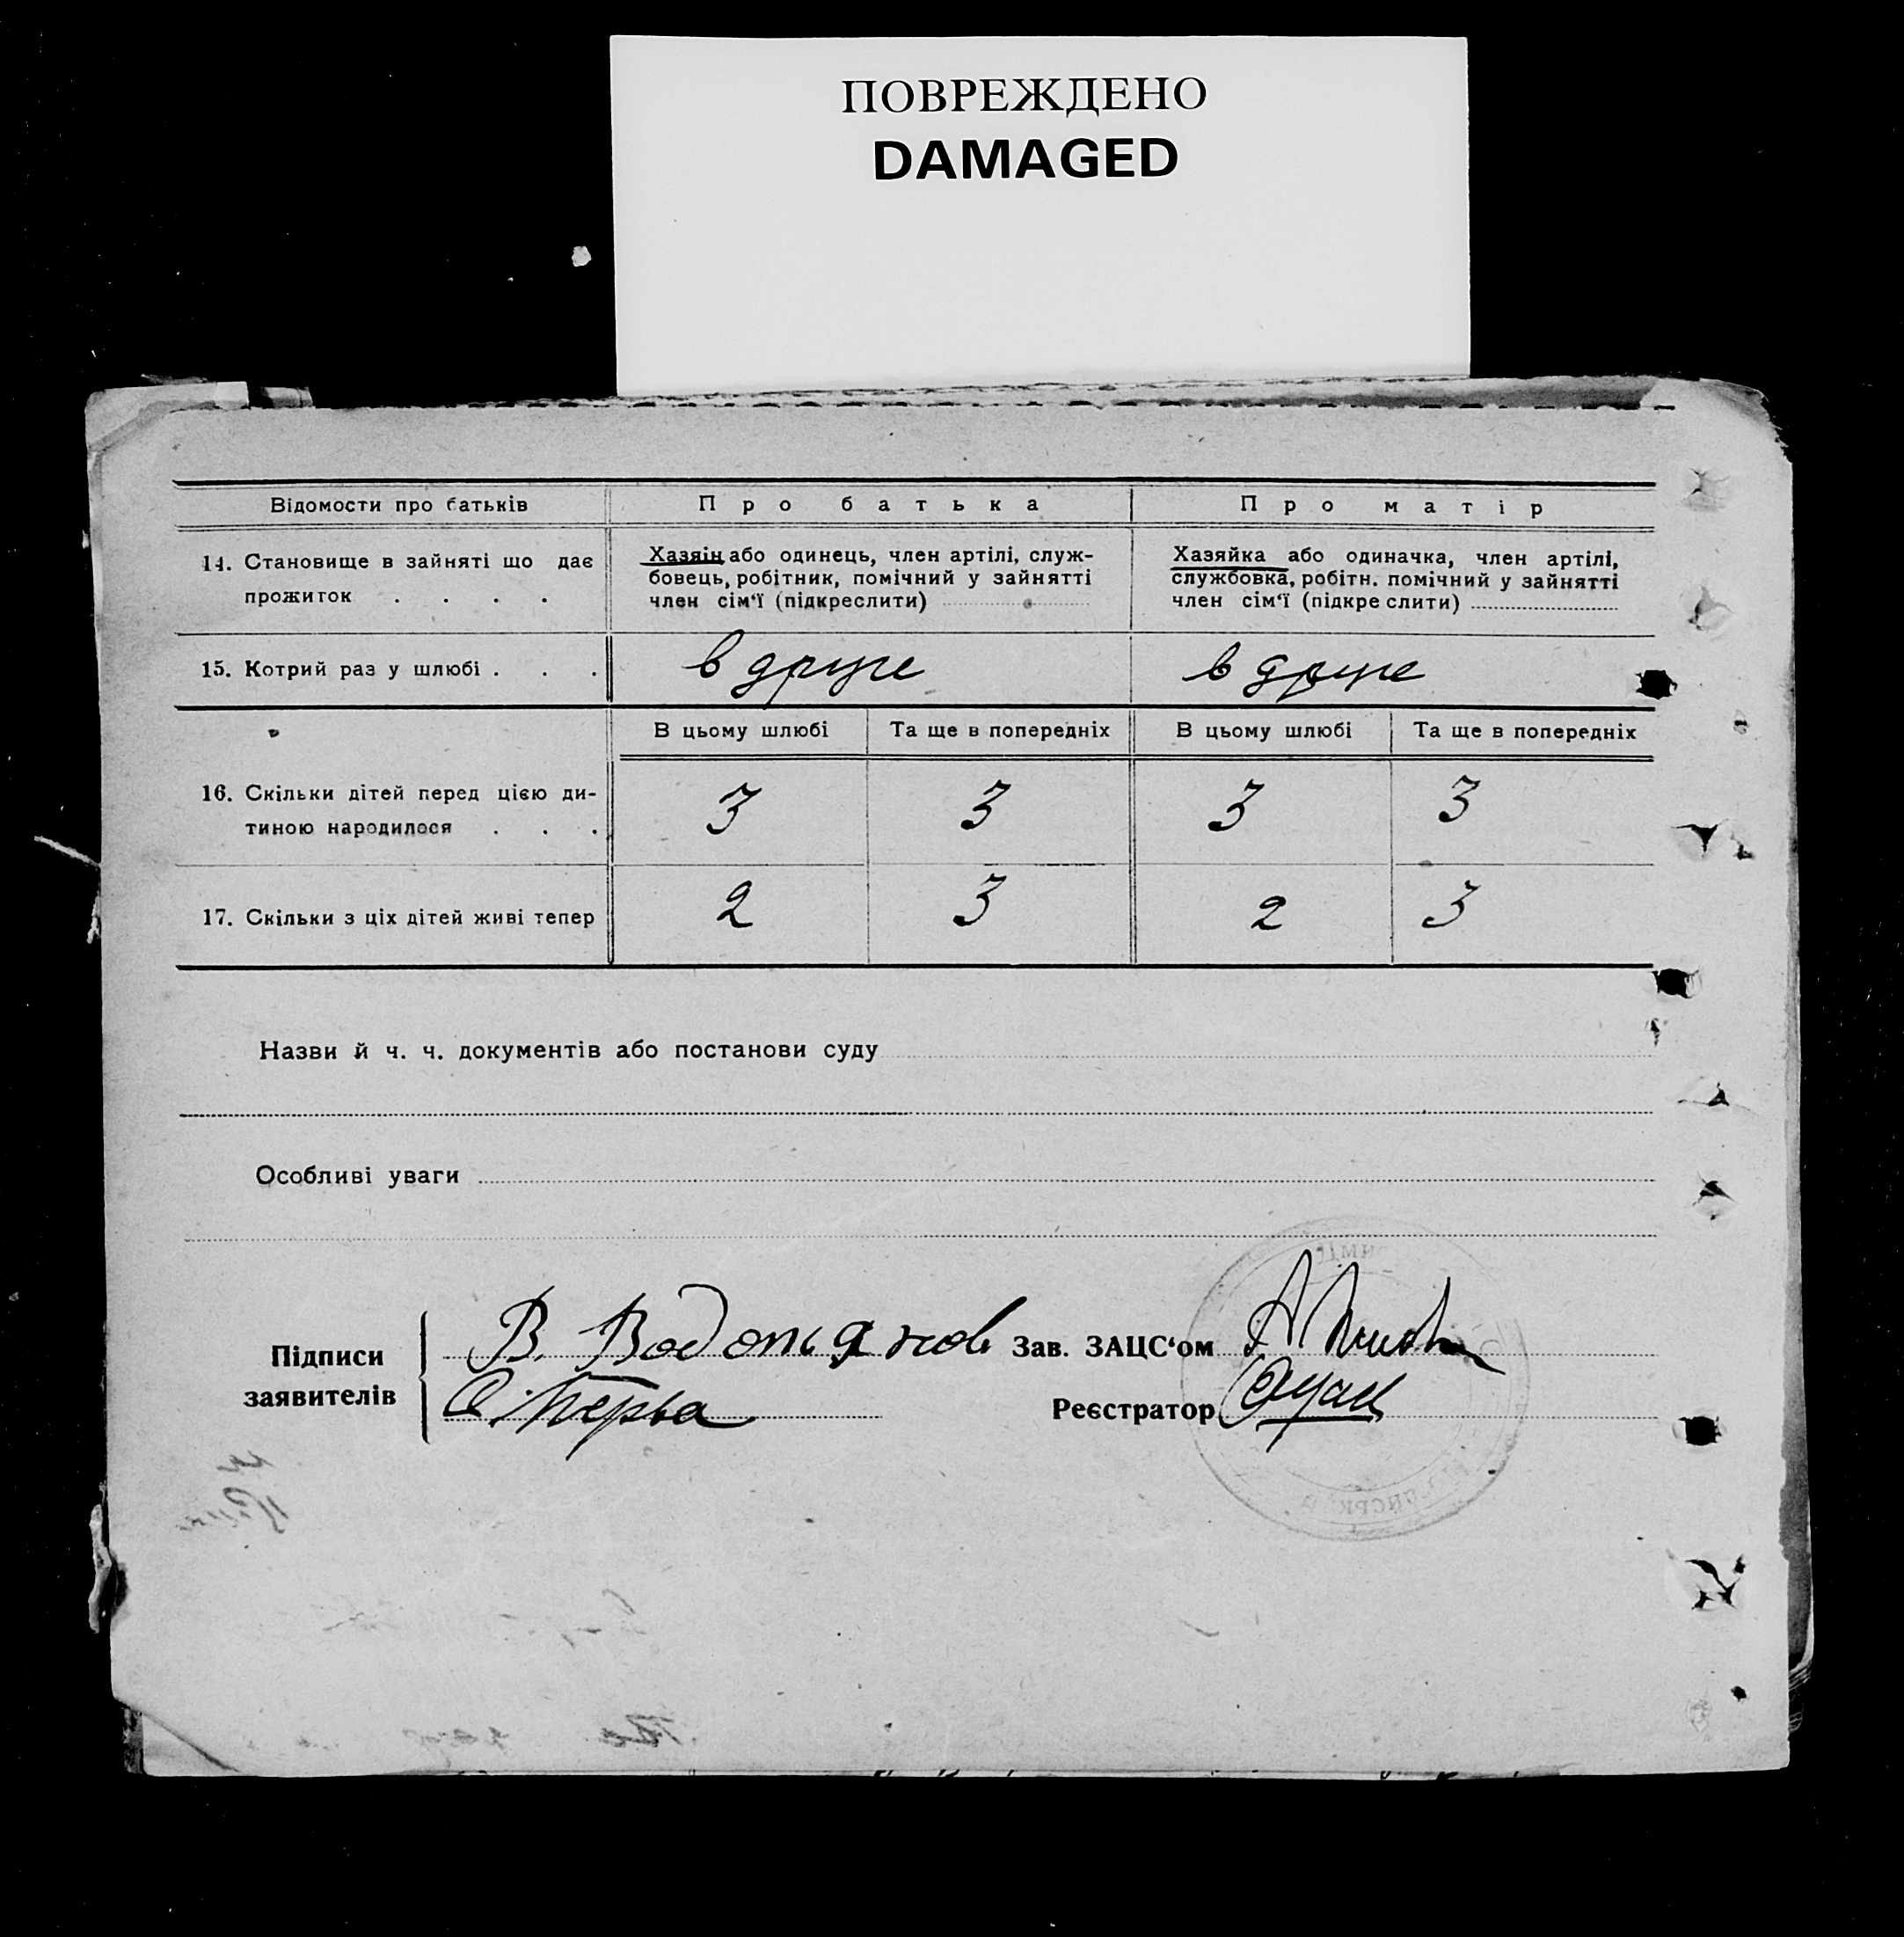 ПОВРЕЖДЕНО
DAMAGED
Відомости про батьків
Про батька
Про матір
14. Становище в зайняті що дає
прожиток . . . .
Хазяін або одинець, член артілі, служ-
бовець, робітник, помічний у зайнятті
член сім‘ї (підкреслити)
Хазяйка або одиначка, член артілі,
службовка, робітн. помічний у зайнятті
член сім‘ї (підкреслити)
15. Котрий раз у шлюбі . . .
в друге
в друге
В цьому шлюбі
Та ще в попередніх
В цьому шлюбі
Та ще в попередніх
16. Скільки дітей перед цією ди-
тиною народилося . . .
3
3
3
3
17. Скільки з ціх дітей живі тепер
2
3
2
3
Назви й ч. ч. документів або постанови суду
Особливі уваги
Підписи
заявителів
В. Водопьянов
Зав. ЗАЦС‘ом
Реєстратор